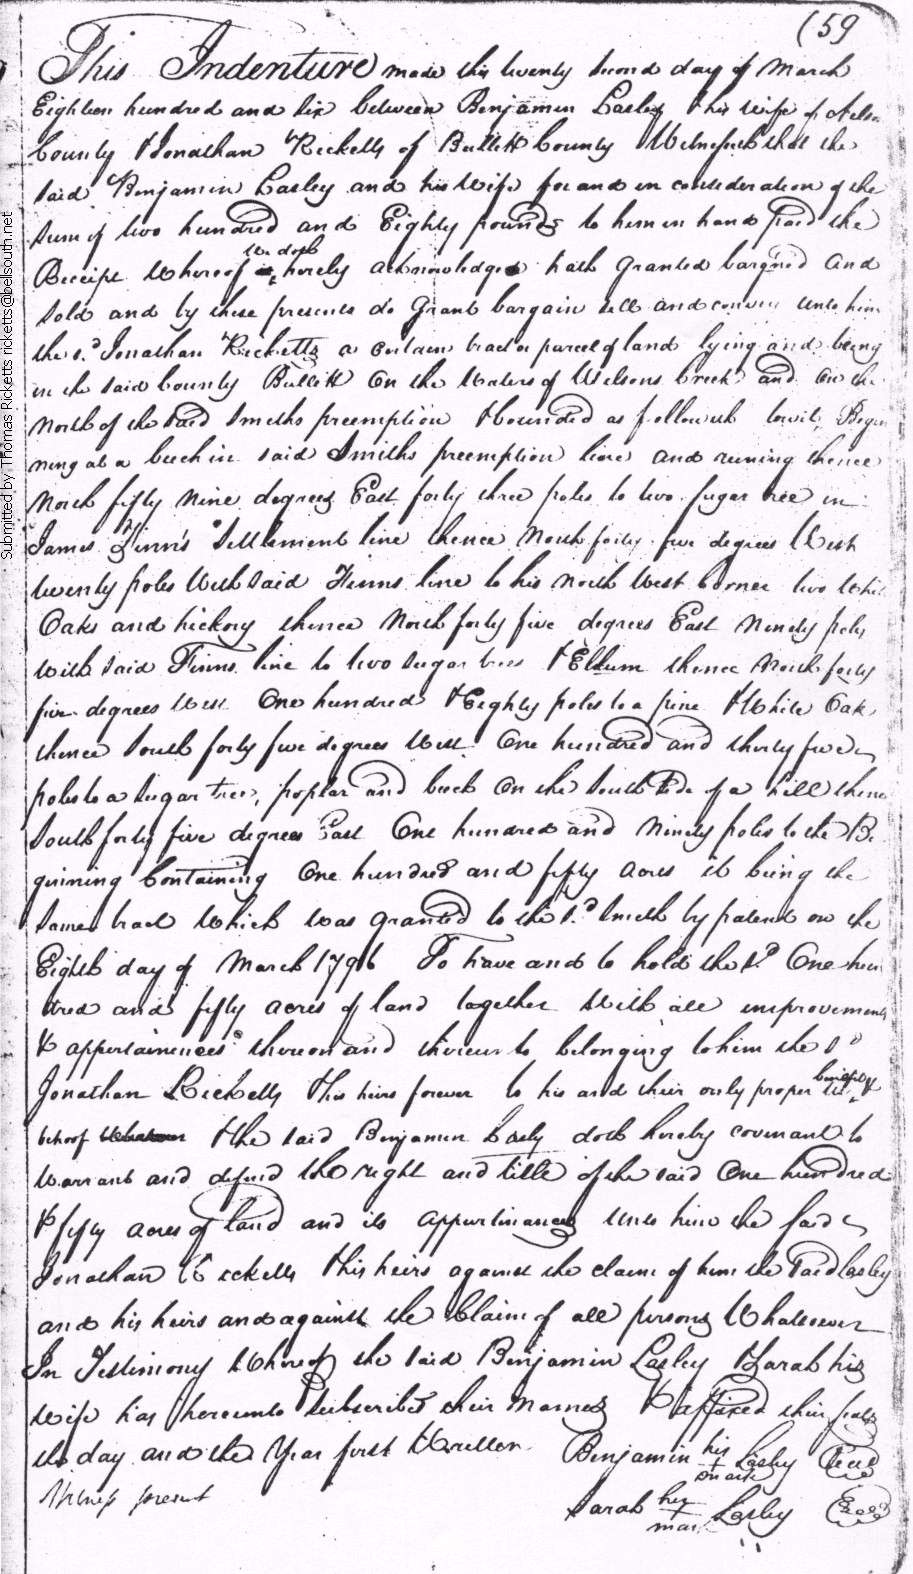 (59
This Indenture made this twenty second day of March
Eighteen hundred and six between Benjamin Lasley & his wife of Nelson
County & Jonathan Ricketts of Bullitt County Witnesseth that the
said Benjamin Lasley and his Wife for and in consideration of the
sum of two hundred and Eighty pounds to him in hand paid the
we doth
Receipt Whereof hereby acknowledged hath Granted bargned and
sold and by these presents do Grant bargain sell and convey unto him
the sd. Jonathan Ricketts a certain tract or parcel of land lying and being
in the said County Bullitt On the Waters of Wilsons Creek and On the
North of the said Smiths preemption & bounded as followeth towit, Begin
ning at a beech in said Smiths preemption line and runing thence
North fifty Nine degrees East forty three poles to two sugar tree in
James Finn's Settlement line thence North forty five degrees West
twenty poles With said Finns line to his North West Corner two White
Oaks and hickory thence North forty five degrees East Ninety poles
With said Finns line to two sugar trees & Ellum thence North forty
five degrees West One hundred & Eighty poles to a pine & White Oak
thence South forty five degrees West One hundred and thirty five
poles to a Sugar Tree, poplar and beech On the South side of a hill thence
South forty five degrees East One hundred and Ninety poles to the Be
ginning Containing One hundred and fifty acres it being the
same tract Which was granted to the sd Smith by patent on the
Eighth day of March 1796 To have and to hold the sd. One hun
dred and fifty acres of land together With all improvements
& appertainences thereon and thereunto belonging to him the sd
Jonathan Ricketts & his heirs forever to his and their only proper
benefit &
behoof & the said Benjamin Lasly doth hereby covenant to
Warrant and defend the right and title of the said One hundred
& fifty acres of land and its appurtinances unto him the said
Jonathan Ricketts & his heirs against the claim of him the said Lasley
and his heirs and against the Claim of all persons Whatsoever
In Testimony Whereof the said Benjamin Lasley & Sarah his
wife has hereunto Subscribed their Names & affixed their seals
the day and the Year first Written
Benjamin his Lasley Seal
mark
Witness present
Sarah her Lasley Seal
mark
Submitted by Thomas Ricketts ricketts@bellsouth.net